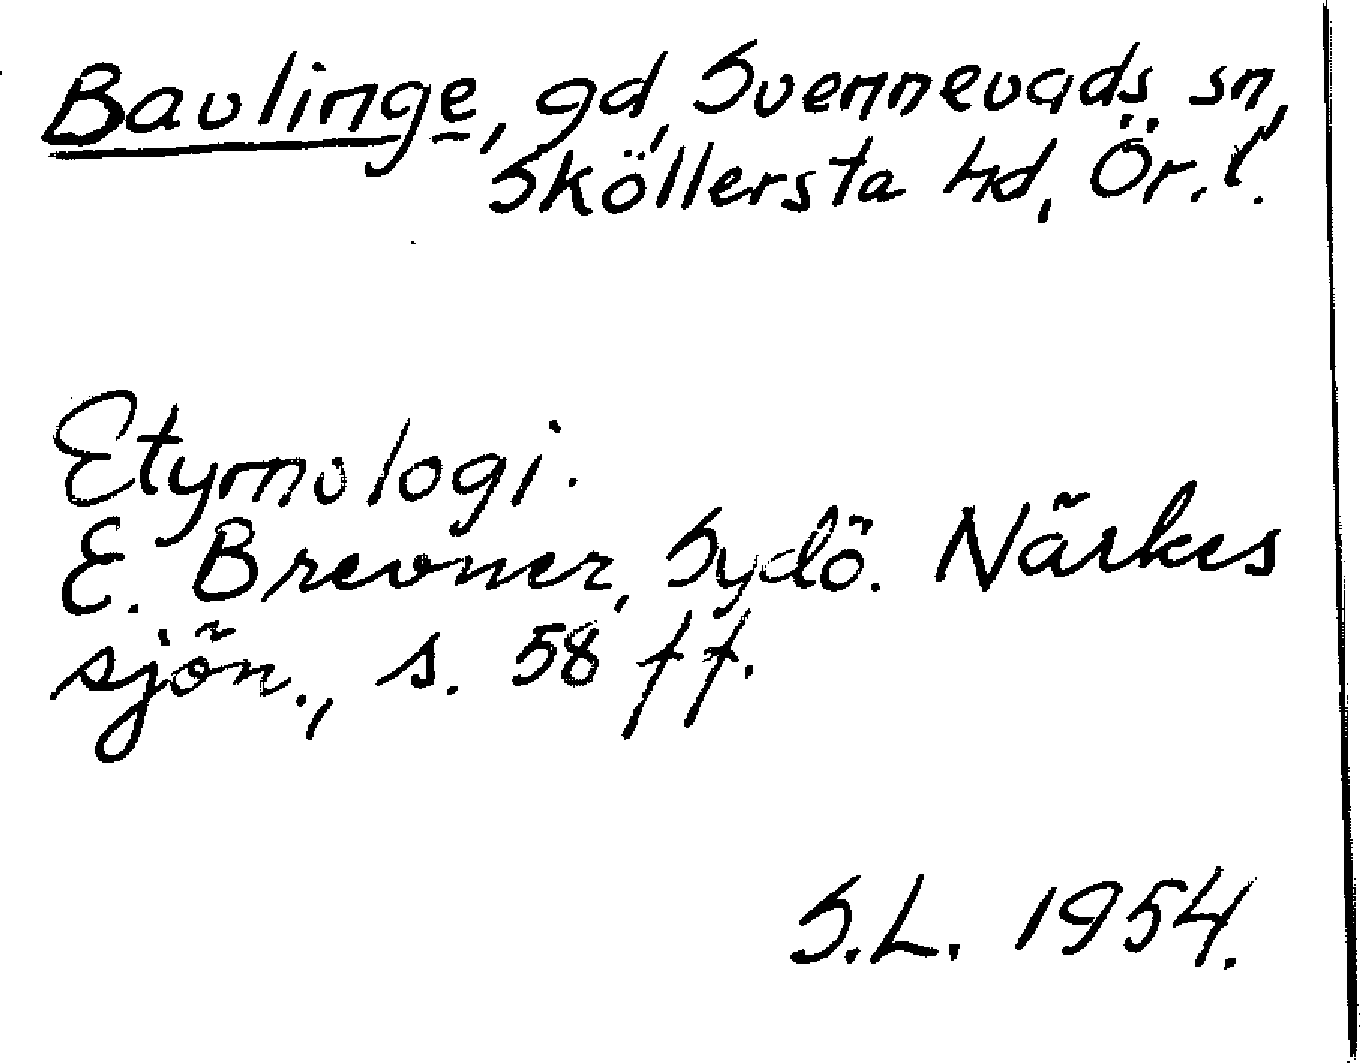 Bavlinge, gd, Svennevads sn,
Sköllersta hd, Ör. l.
Etymologi.
E. Brevner, Sydö. Närkes
sjön., s. 58 ff.
S.L. 1954.